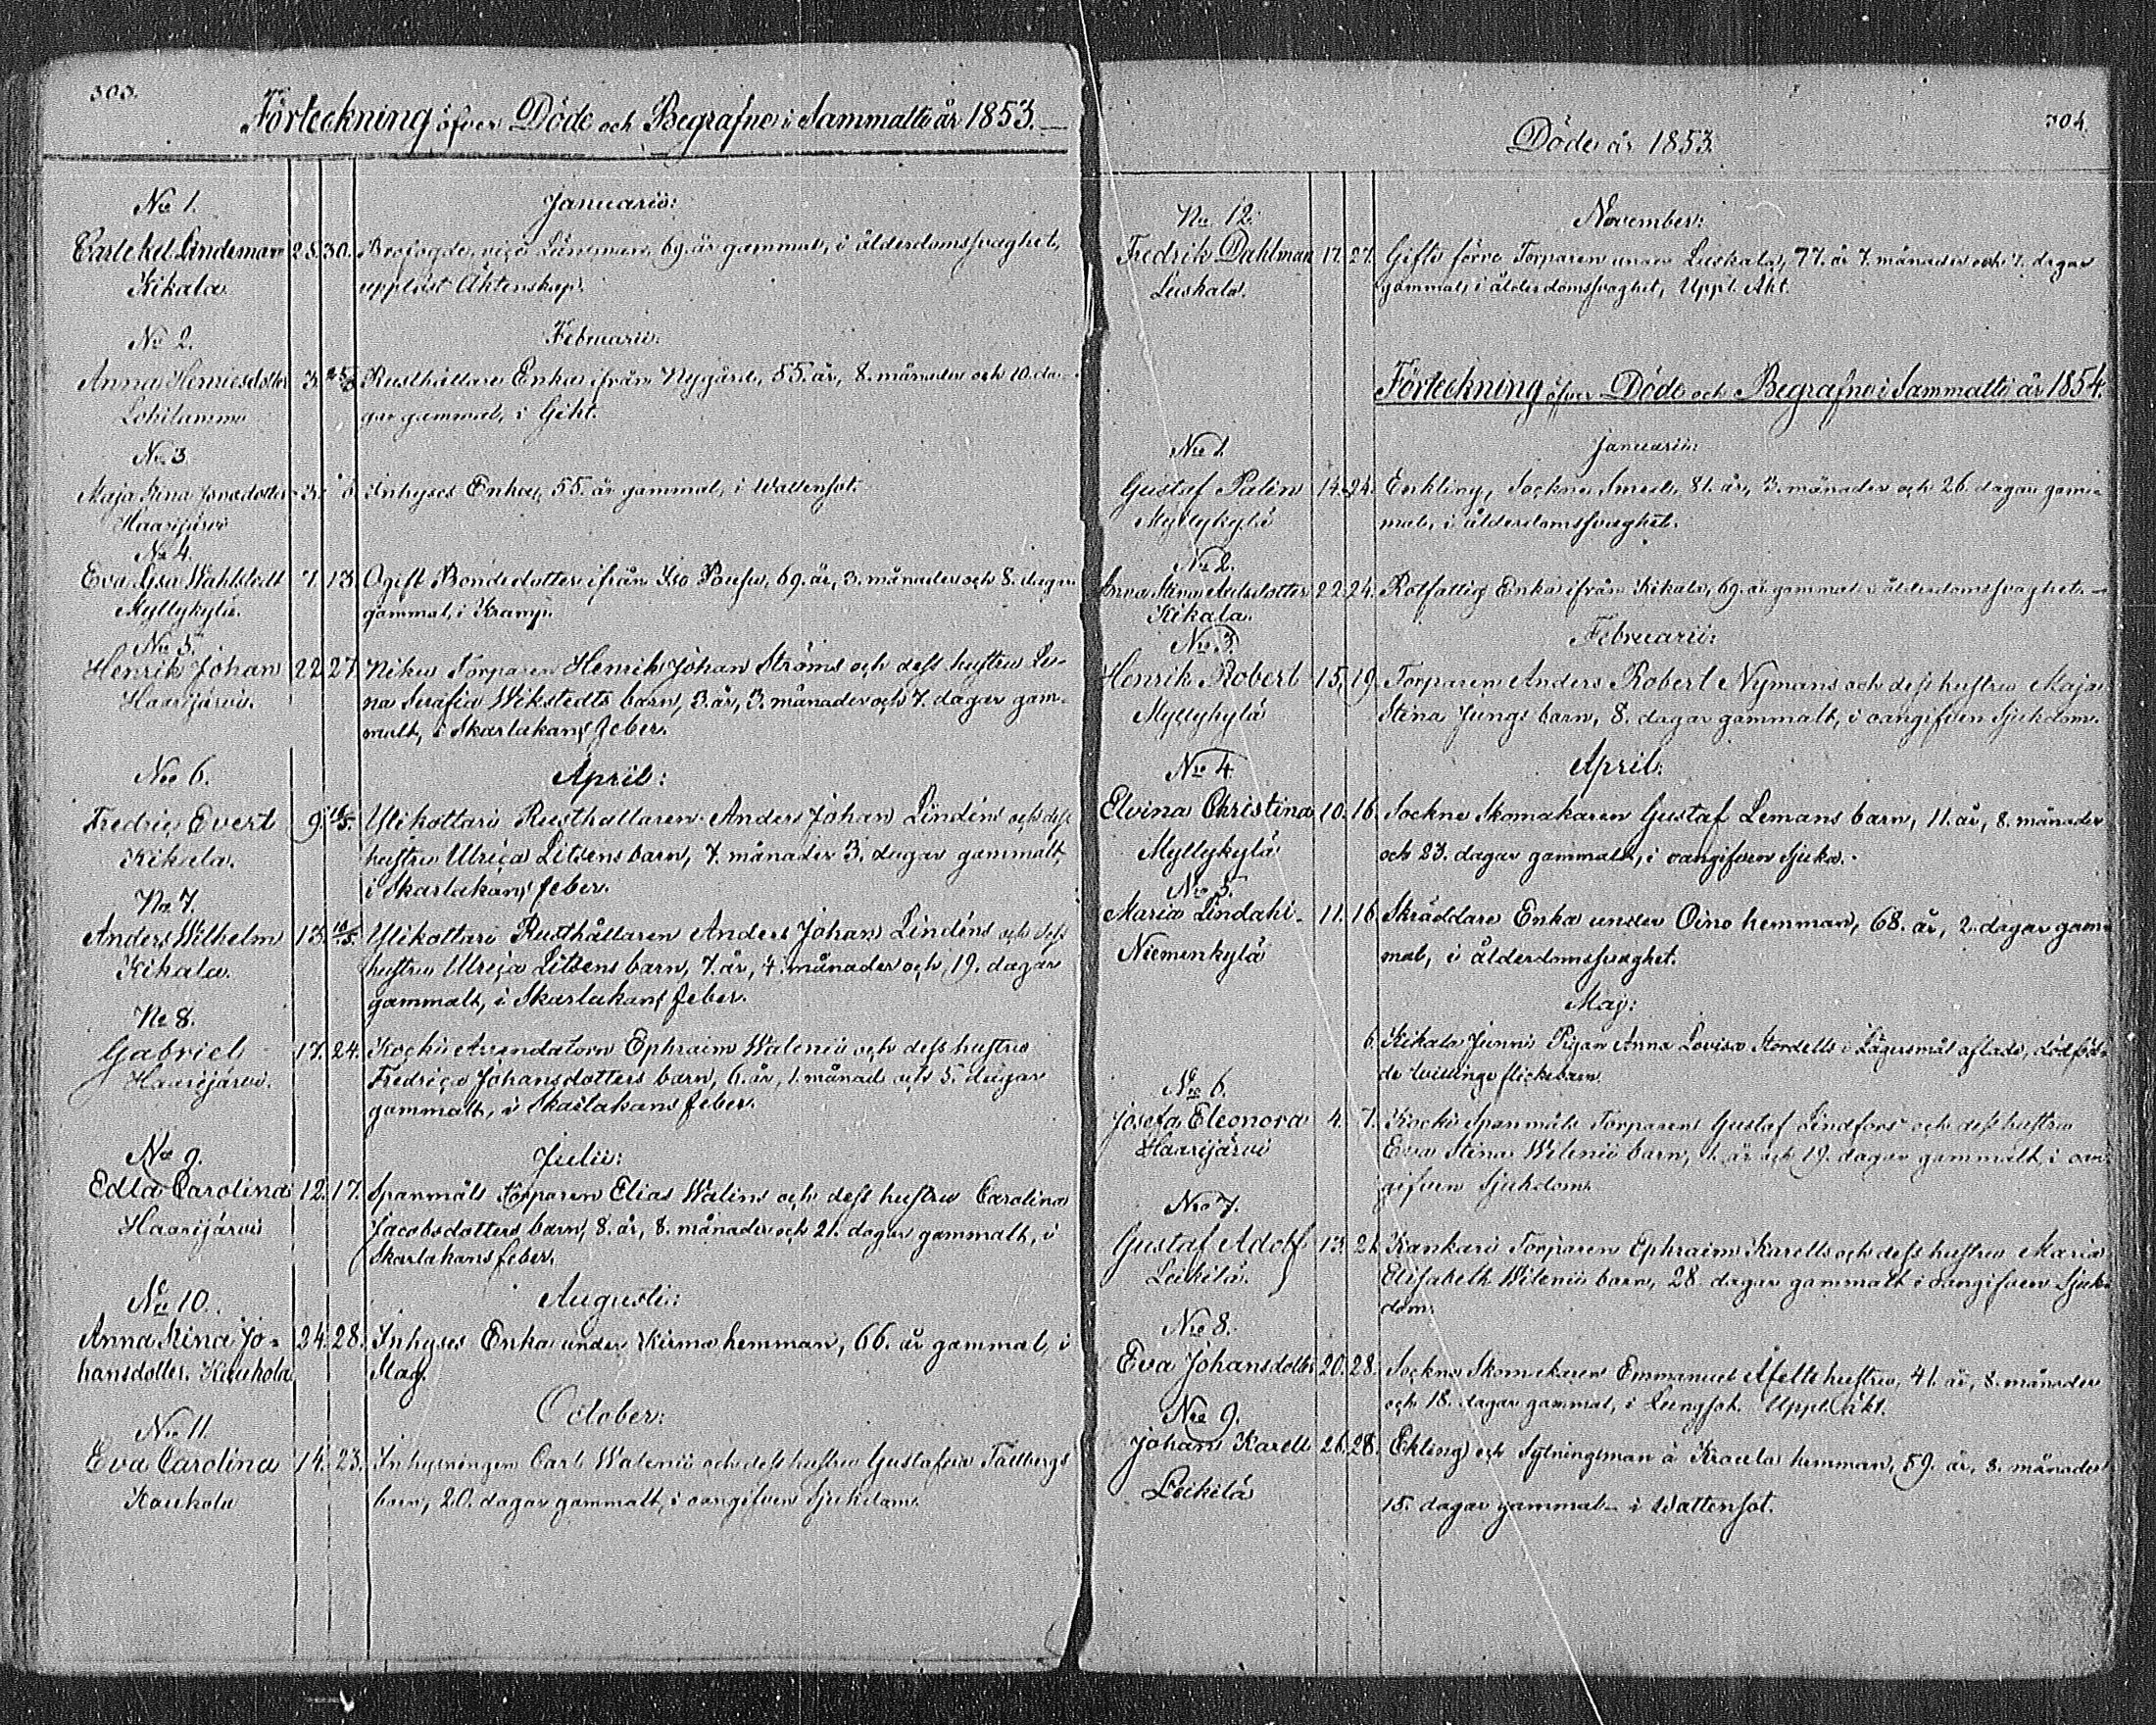 303.
Förteckning öfver Döde och Begrafne i Sammatti år 1853.
No 1.
Januarii:
Lindeman 28. 30. Brofogde, vice Länsman, 69. år gammal, i ålderdomssvaghet,
Kikala upplöst Äktenskap.
No 2.
Februarii:
Anna Henricsdotter 3. Rusthållare Enka ifrån Nygård, 55. år, 8. månader och 10. da-
Lohilammi gar gammal, i Gikt.
No 3.
Maja Stina 3. Inhyses Enka, 55. år gammal, i Wattensot.
Haarijärvi
No 4.
Eva Lisa Wahlstedt 7. 13. Ogift Bondedotter ifrån Iso 69. år, 3. månader och 8. dagar
Myllykylä. gammal, i Kramp.
No 5.
Henrik Johan 22. 27. Torparen Henrik Johan Ströms och dess hustru Le-
Haarijärvi. na Serafia Wikstedts barn, 3. år, 3. månader och 7. dagar gam-
malt, i Skarlakansfeber.
No 6.
April:
Fredric Evert 9. Ylikottari Rusthållaren Anders Johan Lindéns och dess
Kikala. hustru Ulrica Litzens barn, 7. månader 3. dagar gammalt,
i Skarlakansfeber.
No 7.
Anders Wilhelm 13. Ylikottari Rusthållaren Anders Johan Lindéns och dess
Kikala. hustru Ulrica Litzens barn, 7. år, 4. månader och 19. dagar
gammalt, i Skarlakansfeber.
No 8.
Gabriel 17. 24. Kocki Arendatorn Ephraim Walenii och dess hustru
Haarijärvi. Fredrica Johansdotters barn, 6. år, 1. månad och 5. dagar
gammalt, i Skarlakansfeber.
No 9.
Julii:
Edla Carolina 12. 17. Spanmäls Torparen Elias Walins och dess hustru Carolina
Haarijärvi Jacobsdotters barn, 8. år, 8. månader och 21. dagar gammalt, i
Skarlakansfeber.
No 10.
Augusti:
Anna Stina Jo- 24. 28. Inhyses Enka under Kirmo hemman, 66. år gammal, i
hansdotter. Kaukola Slag.
October:
No 11.
Eva Carolina 14. 23. Inhysningen Carl Walenii och dess hustru Gustafva Tallbergs
Kaukola barn, 20. dagar gammalt, i oangifven Sjukdom.
304.
Döde år 1853.
No 12.
November:
Fredrik Dahlman 17. 27. Gifte förre Torparen under Luskala, 77. år 7. månader och 7. dagar
Luskala. gammal, i ålderdomssvaghet, Uppl. Äkt.
Förteckning öfver Döde och Begrafne i Sammatti år 1854.
No 1.
Januarii:
Gustaf Palin 14. 24. Enkling, Sockne Smed, 81. år, 3. månader och 26. dagar gam-
Myllykylä mal, i ålderdomssvaghet.
No 2.
Anna Stina 22. 24. Rotfattig Enka ifrån Kikala, 69. år gammal i ålderdomssvaghet.
Kikala.
No 3.
Februarii:
Henrik Robert 15. 19. Torparen Anders Robert Nymans och dess hustru Maja
Myllykylä Stina Jungs barn, 8. dagar gammalt, i oangifven Sjukdom.
No 4.
April:
Elvina Christina 10. 16. Sockne Skomakaren Gustaf Lemans barn, 11. år, 8. månader
Myllykylä och 23. dagar gammalt, i oangifven Sjuka.
No 5.
Maria Lindahl 11. 16. Skräddare Enka under Oino hemman, 68. år, 2. dagar gam-
Niemenkylä mal, i ålderdomssvaghet.
Maj:
6. Kikala Junni Pigan Anna Lovisa Nordells i Lägersmål aflade, dödföd-
de tvillinge flickebarn.
No 6.
Josefa Eleonora 4. 7. Kocki Spanmäls Torparens Gustaf Lindfors och dess hustru
Haarijärvi Eva Stina Wilenii barn, 1. år och 19. dagar gammalt, i oan-
gifven Sjukdom.
No 7.
Gustaf Adolf 13. 21. Kankari Torparen Ephraim Karells och dess hustru Maria
Leikilä. Elisabeth Wilenii barn, 28. dagar gammalt i oangifven Sjuk-
dom.
No 8.
Eva Johansdotter 20. 28. Sockne Skomakaren Emmanuel hustru, 41. år, 8. månader
och 18. dagar gammal, i Lungsot. Uppl. Äkt.
No 9.
Johan Karell 26. 28. Enkling och Sytningsman å Kraula hemman, 59. år, 3. månader
Leikilä 15. dagar gammal i Wattensot.